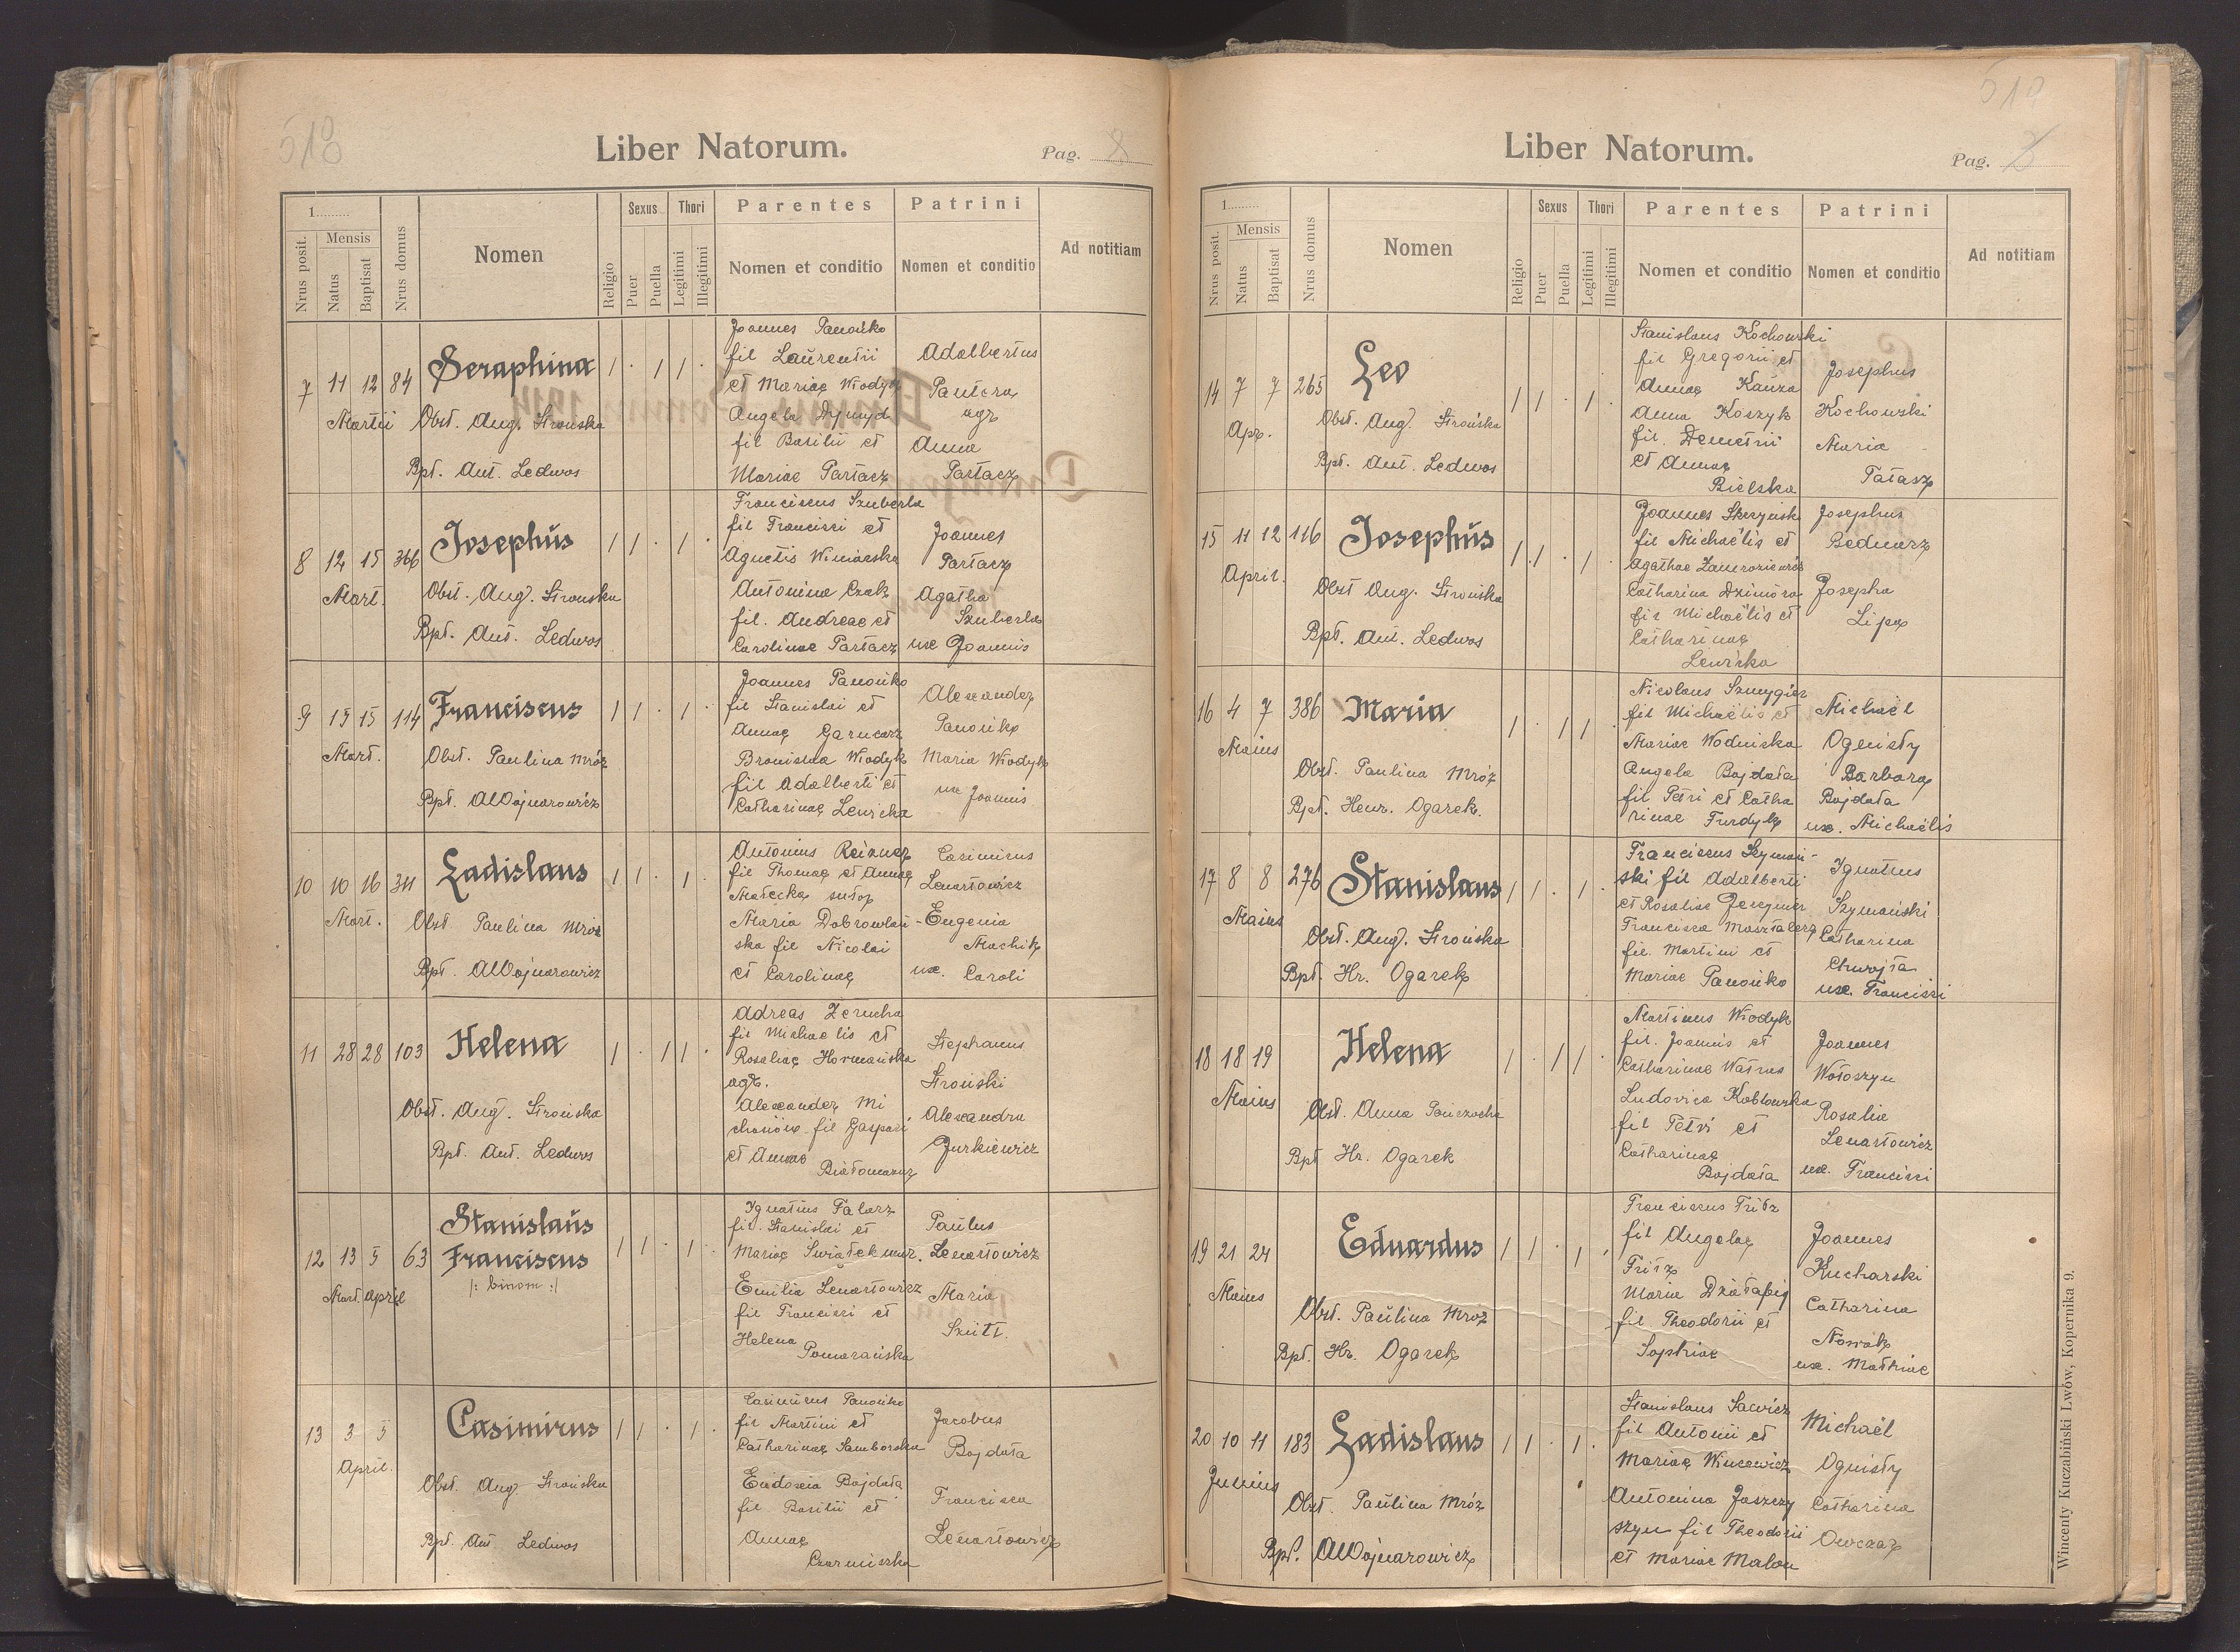 518
Liber Natorum.
Pag. 2
1.........
Nrus posit.
Mensis
Natus
Baptisat
Nrus domus
Nomen
Religio
Sexus
Puer
Puella
Thori
Legitimi
Illegitimi
Parentes
Nomen et conditio
Patrini
Nomen et conditio
Ad notitiam
7 11 12 84 Seraphina 1 . 1 1 .
Martii Obst. Aug. Strońska
Bpt. Ant. Ledwos
Joannes Panońko
fil Laurentii
et Mariae Włodyk
Angela
fil Basilii et
Mariae Partacz
Adalbertus
Pantera
agr
Anna
Partacz
8 12 15 366 Josephus 1 1 . 1 .
Mart. Obst. Aug. Strońska
Bpt. Ant. Ledwos
Franciscus Szuberla
fil Francisci et
Agnetis Winiarska
Antonina Czak
fil. Andreae et
Carolinae Partacz
Joannes
Partacz
Agatha
Szuberla
ux Joannis
9 15 15 114 Franciscus 1 1 . 1 .
Mart. Obst. Paulina Mróz
Bpt. AWojnarowicz
Joannes Panońko
fil Stanislai et
Annae Garncarz
Bronislaa Włodyk
fil Adalberti et
Catharinae Lenicka
Alexander
Panońko
Maria Włodyk
ux Joannis
10 10 16 311 Ladislaus 1 1 . 1 .
Mart. Obst Paulina Mroz
Bpt. AWojnarowicz
Antonius Reizner
fil Thomae et Annae
Małecka sutor
Maria Dobrowlań-
ska fil Nicolai
et Carolinae
Casimirus
Lenartowicz
Eugenia
Machik
ux. Caroli
11 28 28 103 Helena 1 . 1 1 .
Obst. Aug. Strońska
Bpt. Ant. Ledwos
Adreas Zerucha
fil Michaelis et
Rosaliae Hormańska
agr.
Alexander Mi
chońow fil Gaspari
et Annae
Białomazur
Stephanus
Stroński
Alexandra
Jurkiewicz
12 13 5 63 Stanislaus
Franciscus 1 1 . 1 .
/: binom :/
Mart. April
Ignatius Falarz
fil. Stanislai et
Mariae Swiątek murr.
Emilia Lenartowicz
fil Francisci et
Helena
Pomarańska
Paulus
Lenartowicz
Maria
Szütt.
13 3 5 Casimirus 1 1 . 1 .
April. Obst. Aug Strońska
Bpt. Ant Ledwos
Casimirus Panońko
fil Martini et
Catharinae Samborska
Eudoxia Bojdała
fil Basilii et
Annae
Czarniszka
Jacobus
Bojdała
Francisca
Lenartowicz
519
Liber Natorum.
Pag. 3
1.........
Nrus posit.
Mensis
Natus
Baptisat
Nrus domus
Nomen
Religio
Sexus
Puer
Puella
Thori
Legitimi
Illegitimi
Parentes
Nomen et conditio
Patrini
Nomen et conditio
Ad notitiam
14 7 7 265 Leo 1 1 . 1 .
Apr. Obst. Aug. Strońska
Bpt. Ant. Ledwos
Stanislaus Kochowski
fil Gregorii et
Annae Kauza
Anna Koszyk
fil. Demetrii
et Annae
Bielska
Josephus
Kochowski
Maria
Tatasz
15 11 12 116 Josephus 1 . 1 . 1 .
April. Obst Aug. Strońska
Bpt. Ant. Ledwos
Joannes Skrzyński
fil Michaëlis et
Agathae Zamroziewicz
Catharina Dzimira
fil Michaëlis et
Catharinae
Lenicka
Josephus
Bednarz
Josepha
Lipa
16 4 7 386 Maria 1 . 1 1 .
Maius Obst. Paulina Mróz
Bpt. Henr. Ogarek.
Nicolaus Szmygier
fil Michaëlis et
Mariae Wodniska
Angela Bojdała
fil Petri et Catha
rinae Furdyk
Michaël
Ogenisty
Barbara
Bojdała
ux. Michaëlis
17 8 8 276 Stanislaus 1 1 . 1 .
Maius Obst. Aug. Strońska
Bpt. Hr. Ogarek
Franciscus Szymań-
ski fil Adalberti
et Rosaliae
Francisca Masztalerz
fil. Martini et
Mariae Panońko
Ignatius
Szymański
Catharina
Chwojta
ux. Francisci
18 18 19 Helena 1 . 1 1 .
Maius Obst. Anna Pańczocha
Bpt Hr. Ogarek
Martinus Włodyk
fil. Joannis et
Catharinae Watras
Ludovica Kozłowska
fil Petri et
Catharinae
Bojdała
Joannes
Wołoszyn
Rosalia
Lenartowicz
ux. Francisci
19 21 24 Eduardus 1 1 . 1 .
Maius Obst. Paulina Mroz
Bpt. Hr. Ogarek
Franciscus Fritz
fil Angelae
Fritz
Maria Działapij
fil Theodorii et
Sophiae
Joannes
Kucharski
Catharina
Nowak
ux. Mathiae
20 10 11 183 Ladislaus 1 1 . 1 .
Junius Obst. Paulina Mróz
Bpt. AWojnarowicz
Stanislaus Sacwicz
fil Antonii et
Mariae Wincewicz
Antonina Jaszczy
szyn fil Theodorii
et Mariae Malon
Michaël
Ognisty
Catharina
Owczar
Wincenty Kuczabiński Lwów, Kopernika 9.